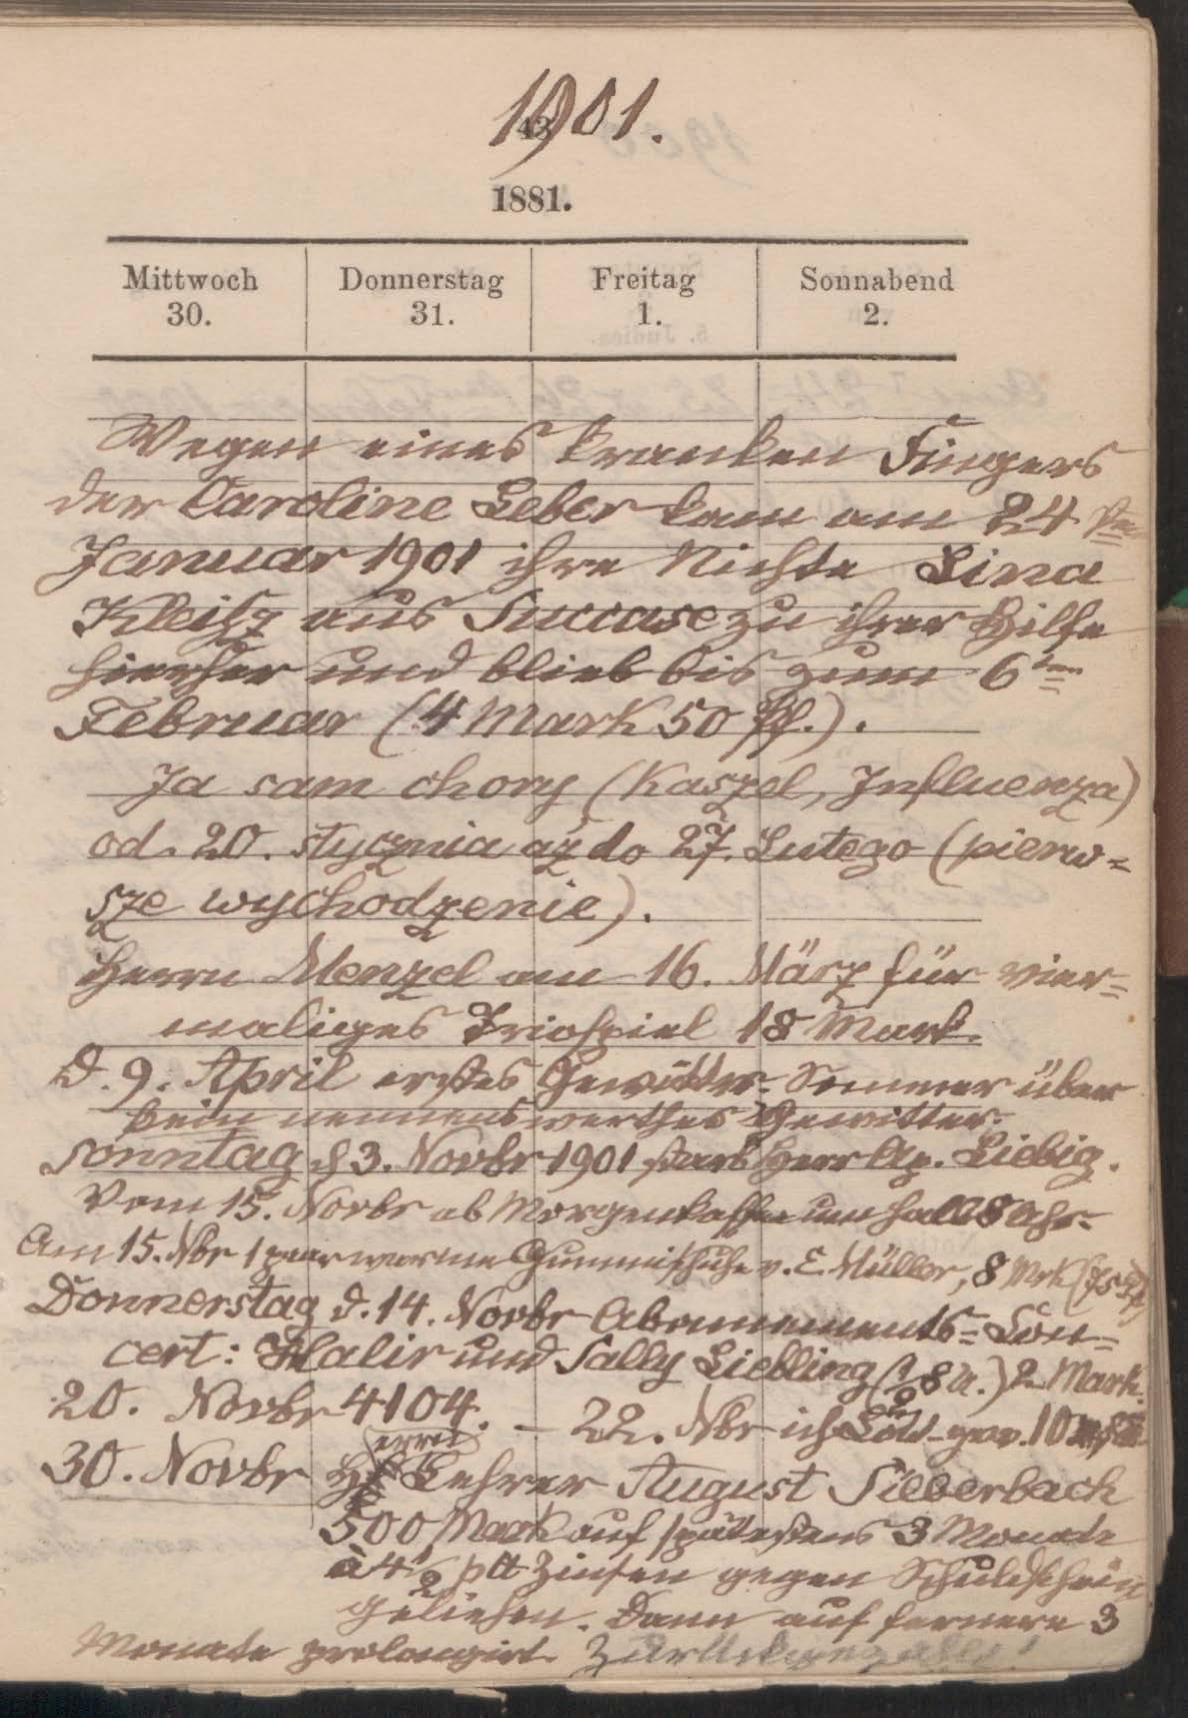 1901.
43
1881.
Mittwoch Donnerstag Freitag Sonnabend
30. 31. 1. 2.
Wegen eines kranken Fingers
der Caroline Leber kam am 24 ten
Januar 1901 ihre Nichte Lina
aus Succase zu ihrer Hilfe
hierher und blieb bis zum 6ten
Februar (4 Mark 50 Pf.).
Ja sam chory (Kaszel, Influenza)
od. 20. stycznia aż do 27. Lutego (pierw=
sze wychodzenie).
Herrn Menzel am 16. März für vier=
maliges Triospiel 18 Mark.
D. 9. April erstes Gewitter. Sommer über
kein nennenswerthes Gewitter.
Sonntag d 3. Novbr 1901 starb Herr Ap. Liebig.
Vom 15. Novbr ab Morgenkaffee um halb 8 Uhr.
Am 15. Nbr 1 paar warme Gummischuhe v. E. Müller, 8 Mrk
Donnerstag d. 14. Novbr Abonnements=Con=
cert: Halir und Sally Liebling (½ 8 U.) 2 Mark.
20. Novbr 4104. – 22. Nbr ich 10
30. Novbr Herrn Lehrer August Silberbach
500 Mark auf spätestens 3 Monate
à 4½ pCt Zinsen gegen Schuldschein
geliehen. Dann auf fernere 3
Monate prolongirt. Zurückgezahlt!